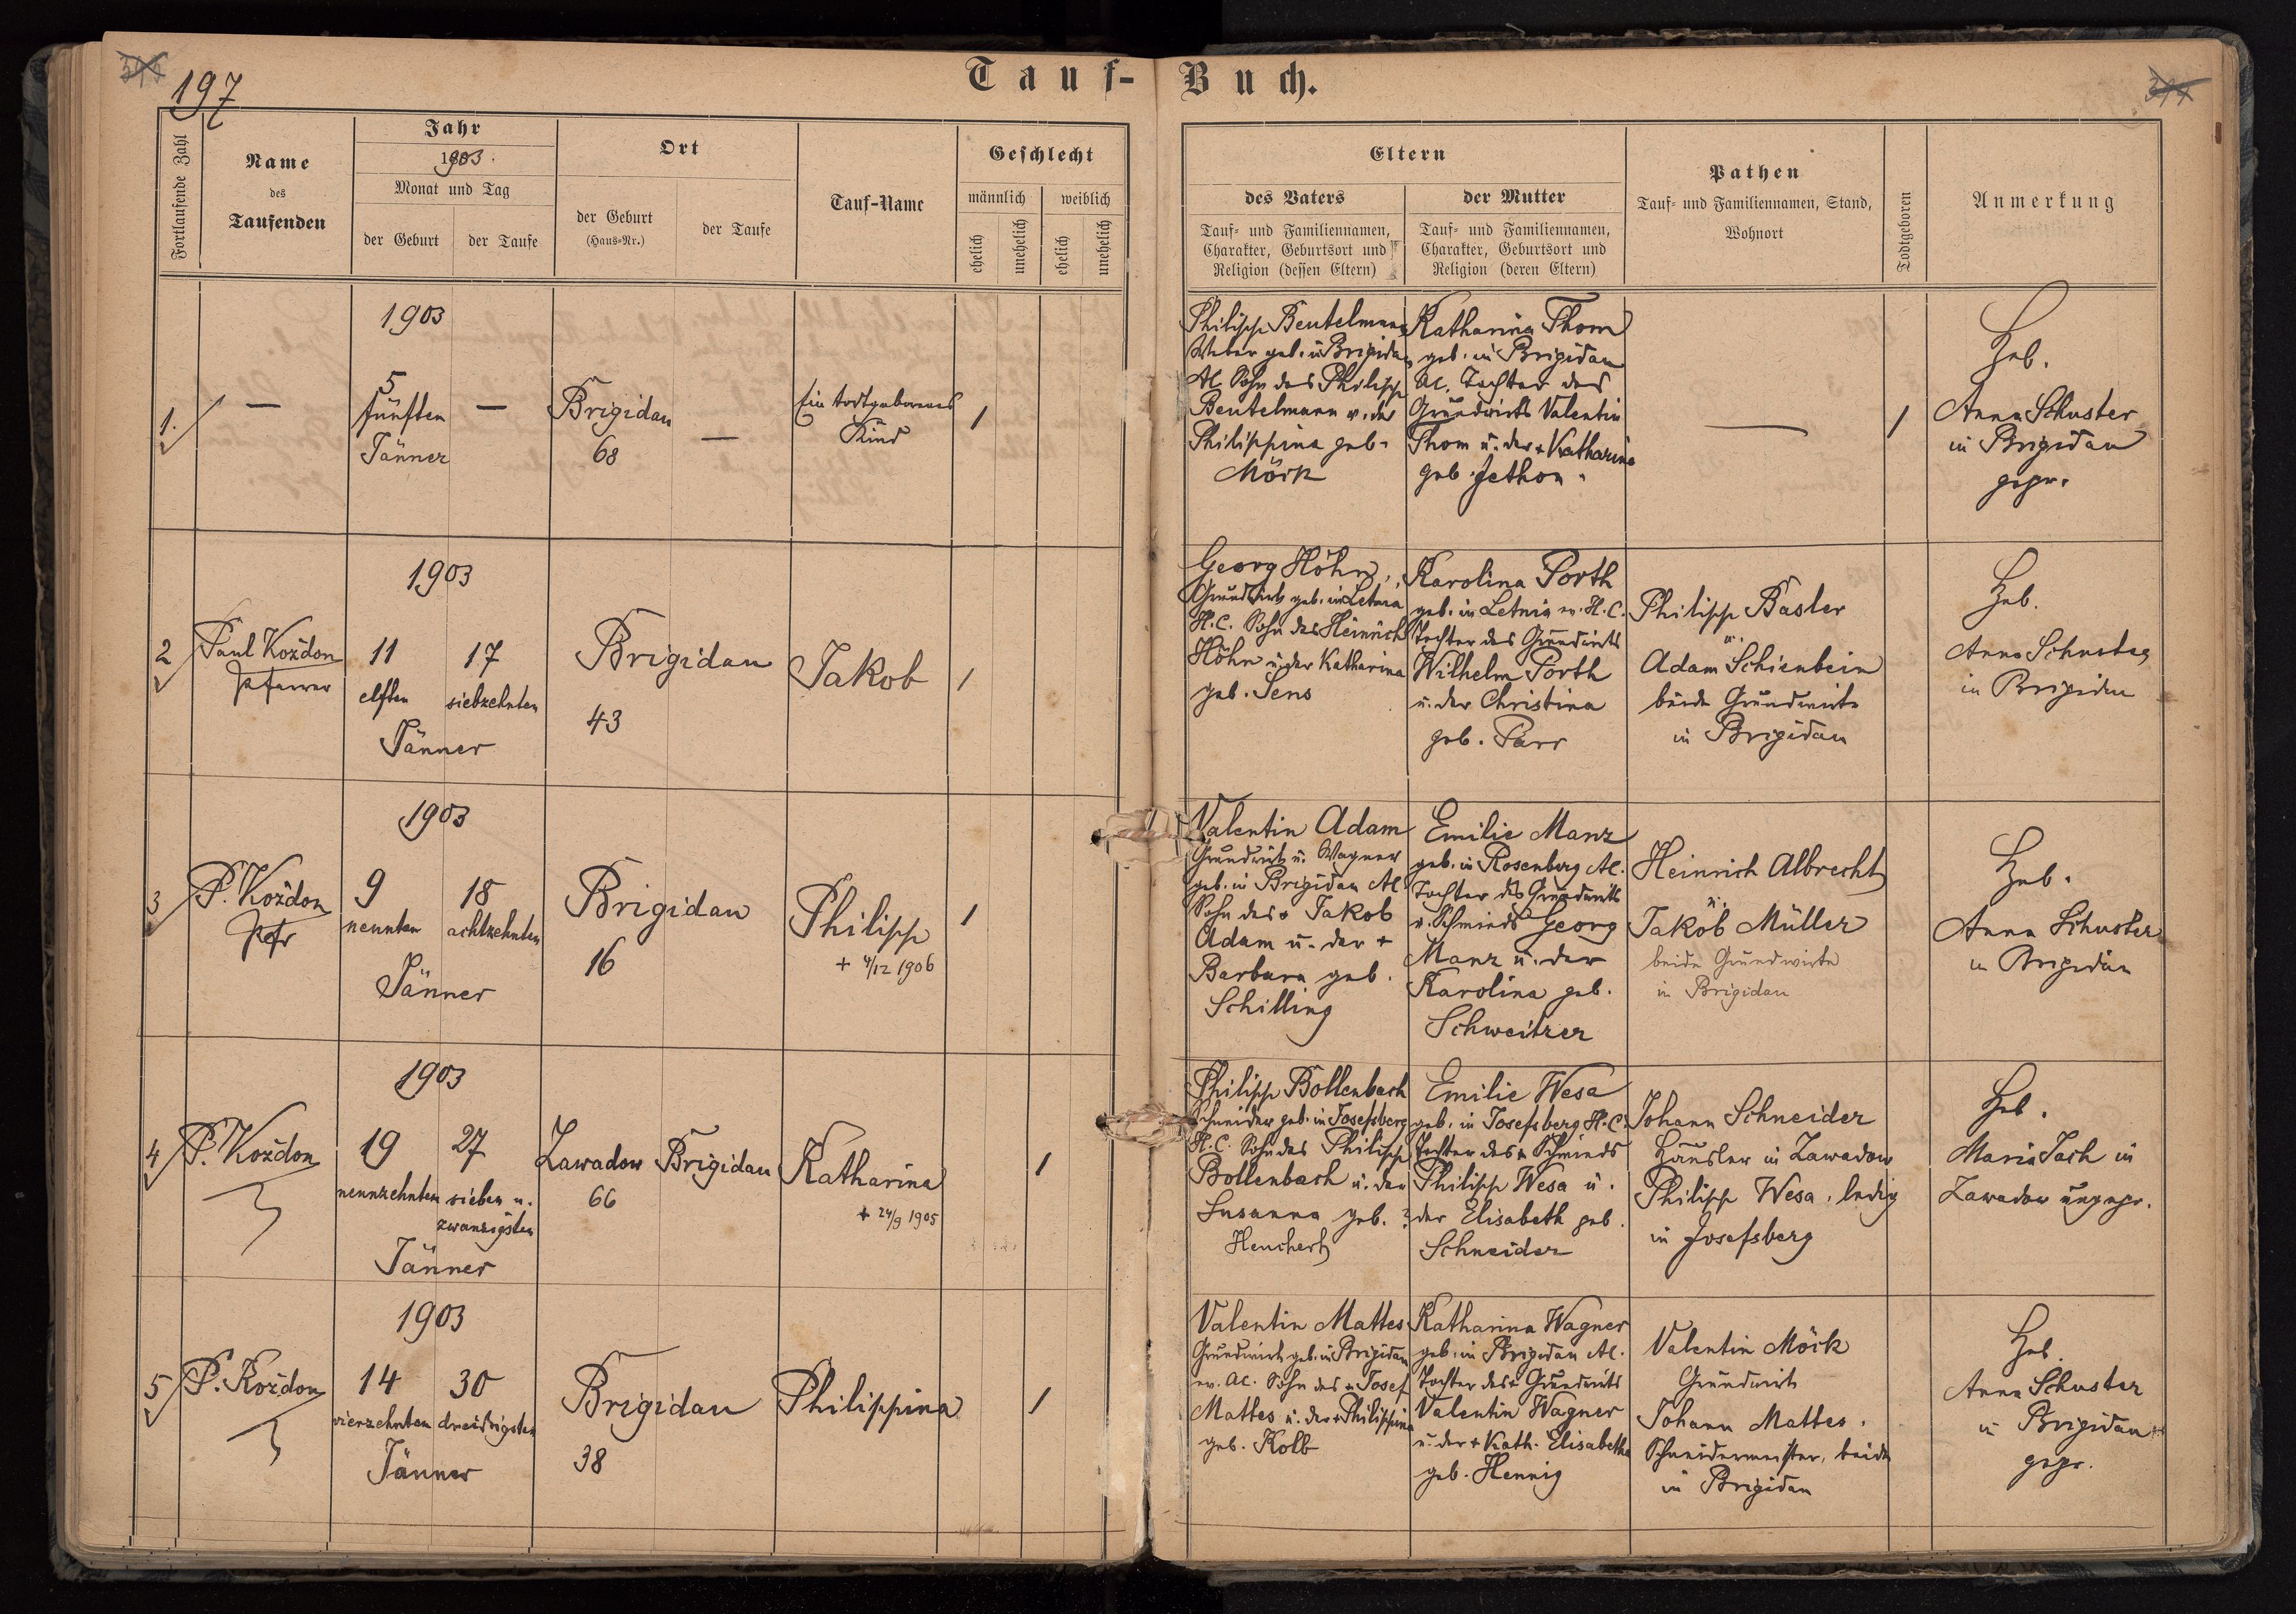 197
Tauf-Buch.
Fortlaufende Zahl
Name
des
Taufenden
Jahr
1903.
Monat und Tag
der Geburt
der Taufe
Ort
der Geburt
(Haus-Nr.)
der Taufe
Tauf-Name
Geschlecht
männlich
weiblich
ehelich
unehelich
ehelich
unehelich
Eltern
des Vaters
Tauf- und Familiennamen,
Charakter, Geburtsort und
Religion (dessen Eltern)
der Mutter
Tauf- und Familiennamen,
Charakter, Geburtsort und
Religion (deren Eltern)
Pathen
Tauf- und Familiennamen, Stand,
Wohnort
Todtgeboren
Anmerkung
1.
—
1903
5
fünften
Jänner
—
Brigidau
68
—
Ein todtgeborenes
Kind
1
Philipp Beutelmann
Weber geb. in Brigidau
AC. Sohn des Philipp
Beutelmann u. der
Philippina geb.
Mörk
Katharina Thom
geb. in Brigidau
AC. Tochter des
Grundwirts Valentin
Thom u. der + Katharina
geb. Jethon.
—
1
Heb.
Anna Schuster
in Brigidau
gepr.
2
Paul Koždon
Pfarrer
1903
11
elften
17
siebzehnten
Jänner
Brigidau
43
Jakob
1
Georg Höhn,
Grundwirt geb. in Letnia
H.C. Sohn des Heinrich
Höhn u. der Katharina
geb. Sens
Karolina Porth
geb. in Letnia ev. H.C.
Tochter des Grundwirts
Wilhelm Porth
u. der Christina
geb. Parr
Philipp Basler
u.
Adam Schienbein
beide Grundwirte
in Brigidau
Heb.
Anna Schuster
in Brigidau
3
P. Koždon
Pfr
1903
9
neunten
18
achtzehnten
Jänner
Brigidau
16
Philipp
+ 4/12 1906
1
Valentin Adam
Grundwirt u. Wagner
geb. in Brigidau AC.
Sohn des + Jakob
Adam u. der +
Barbara geb.
Schilling
Emilie Manz
geb. in Rosenberg AC.
Tochter des Grundwirts
u. Schmieds Georg
Manz u. der
Karolina geb.
Schweitzer
Heinrich Albrecht
u.
Jakob Müller
beide Grundwirte
in Brigidau
Heb.
Anna Schuster
in Brigidau
4
P. Koždon
1903
19
neunzehnten
27
sieben u.
zwanzigsten
Jänner
Zawadow
66
Brigidau
Katharina
+ 24/9 1905
1
Philipp Bollenbach
Schneider geb. in Josefsberg
H.C. Sohn des Philipp
Bollenbach u. der
Susanna geb. ?
Heuchert
Emilie Wesa
geb. in Josefsberg H.C.
Tochter des + Schmieds
Philipp Wesa u.
der Elisabeth geb.
Schneider
Johann Schneider
Häusler in Zawadow
Philipp Wesa, ledig
in Josefsberg
Heb.
Maria Tach in
Zawadow ungepr.
5
P. Koždon
1903
14
vierzehnten
30
dreißigsten
Jänner
Brigidau
38
Philippina
1
Valentin Mattes
Grundwirt geb. in Brigidau
ev. AC. Sohn des + Josef
Mattes u. der + Philippina
geb. Kolb
Katharina Wagner
geb. in Brigidau AC.
Tochter des + Grundwirts
Valentin Wagner
u. der + Kath. Elisabetha
geb. Hennig
Valentin Mörk
Grundwirt
Johann Mattes,
Schneidermeister, beide
in Brigidau
Heb.
Anna Schuster
in Brigidau
gepr.